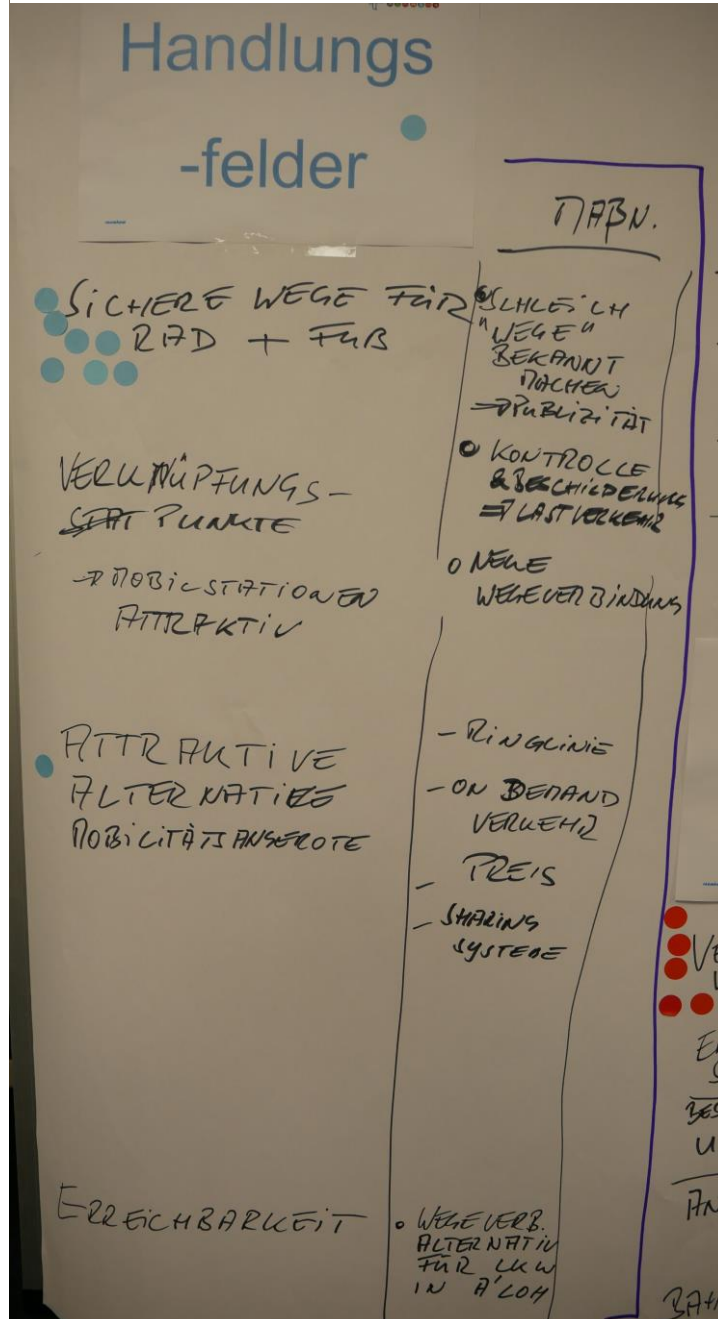 Handlungs
-felder
MAßN.
SICHERE WEGE FÜR
RAD + FUß
VERKNÜPFUNGS-
PUNKTE
→ MOBILSTATIONEN
ATTRAKTIV
ATTRAKTIVE
ALTERNATIVE
MOBILITÄTSANGEBOTE
ERREICHBARKEIT
SCHLEICH
"WEGE"
BEKANNT
MACHEN
⇒ PUBLIZITÄT
KONTROLLE
& BESCHILDERUNG
⇒ LASTVERKEHR
O NEUE
WEGEVERBINDUNG
- RINGLINIE
- ON DEMAND
VERKEHR
- PREIS
- SHARING
SYSTEME
• WEGEVERB.
ALTERNATIV
FÜR LKW
IN A'LOH